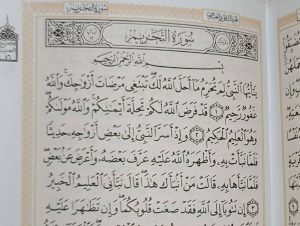 سُورَةُ التَّحْرِيمِ
سُورَةُ التَّحْرِيمِ
بِسْمِ اللَّهِ الرَّحْمَٰنِ الرَّحِيمِ
يَا أَيُّهَا النَّبِيُّ لِمَ تُحَرِّمُ مَا أَحَلَّ اللَّهُ لَكَ تَبْتَغِي مَرْضَاتَ أَزْوَاجِكَ وَاللَّهُ
غَفُورٌ رَحِيمٌ قَدْ فَرَضَ اللَّهُ لَكُمْ تَحِلَّةَ أَيْمَانِكُمْ وَاللَّهُ مَوْلَاكُمْ
وَهُوَ الْعَلِيمُ الْحَكِيمُ وَإِذْ أَسَرَّ النَّبِيُّ إِلَىٰ بَعْضِ أَزْوَاجِهِ حَدِيثًا
فَلَمَّا نَبَّأَتْ بِهِ وَأَظْهَرَهُ اللَّهُ عَلَيْهِ عَرَّفَ بَعْضَهُ وَأَعْرَضَ عَنْ بَعْضٍ
فَلَمَّا نَبَّأَهَا بِهِ قَالَتْ مَنْ أَنْبَأَكَ هَٰذَا قَالَ نَبَّأَنِيَ الْعَلِيمُ الْخَبِيرُ
إِنْ تَتُوبَا إِلَى اللَّهِ فَقَدْ صَغَتْ قُلُوبُكُمَا وَإِنْ تَظَاهَرَا عَلَيْهِ